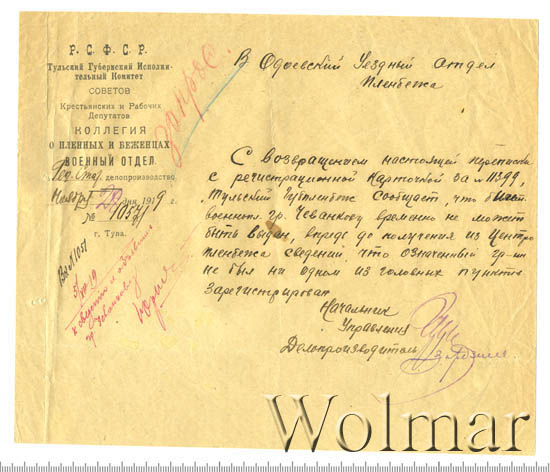 Р. С. Ф. С. Р.
Тульский Губернский Исполни-
тельный Комитет
СОВЕТОВ
Крестьянских и Рабочих
Депутатов
КОЛЛЕГИЯ
О ПЛЕННЫХ И БЕЖЕНЦАХ
ВОЕННЫЙ ОТДЕЛ.
делопроизводство.
Ноября дня 1919 г.
№ 10571
г. Тула.
Вх №1051
запрос
В Одоевский Уездный отдел
Пленбежа
С возвращением настоящей переписки
с регистрационной карточкой за №
Тульский Губпленбеж сообщает, что
гр. Чеванкову временно не может
быть выдан, впредь до получения из Центро
пленбежа сведений, что означенный гр-ин
не был ни одном из головных пунктов
зарегистрирован
Начальник
Управления
Делопроизводитель
Wolmar